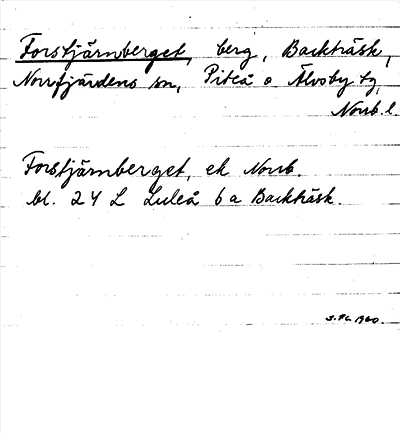 Forstjärnberget, berg, Backträsk,
Norrfjärdens sn, Piteå o Älvsby tg,
Norrb. l.
Forstjärnberget, ek Norrb.
bl. 24 L Luleå 6 a Backträsk.
1960.